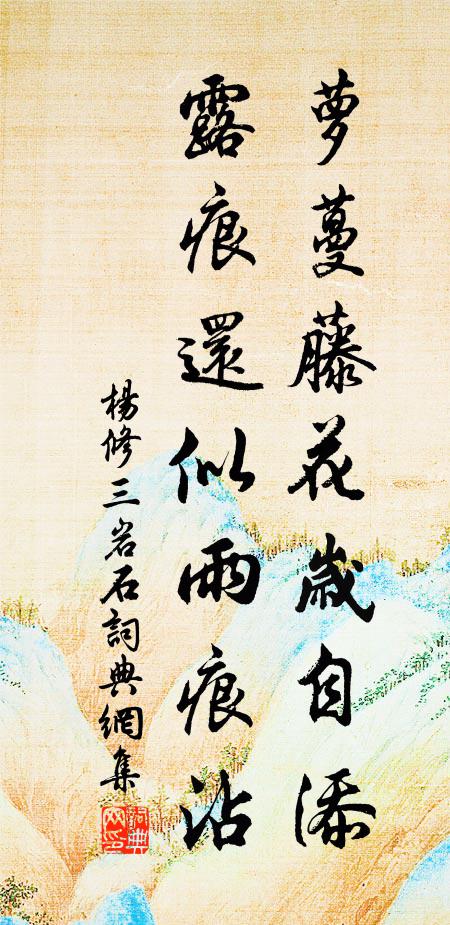 夢蔓藤花歲自添
露痕還似雨痕沾
楊修三岩石詞典網集
詞典网印